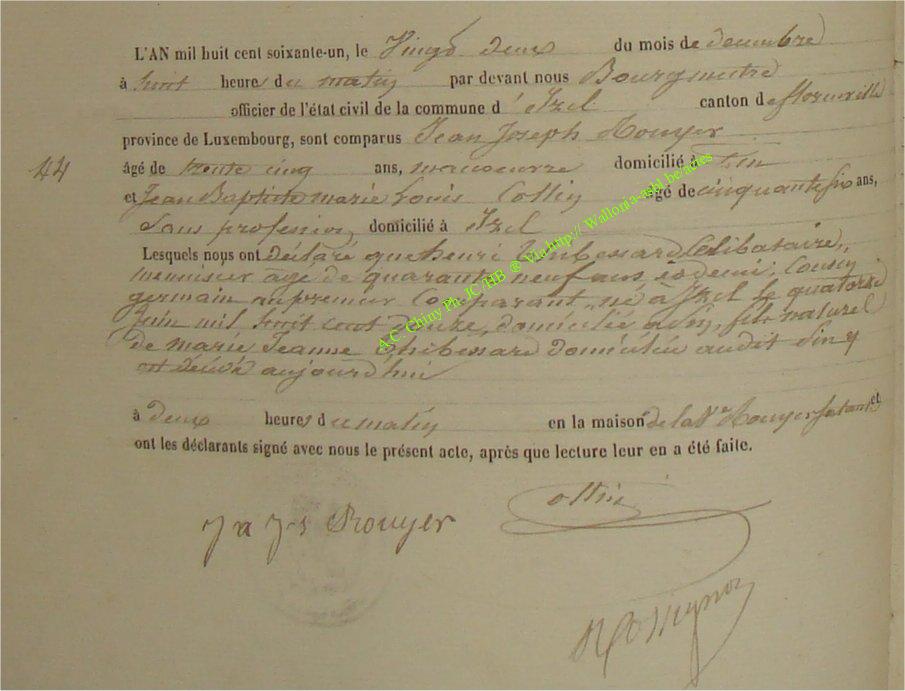 L'AN mil huit cent soixante-un, le Vingt deux du mois de decembre
à huit heures du matin par devant nous Bourgmestre
officier de l'état civil de la commune d'Izel canton de florenville
province de Luxembourg, sont comparus Jean Joseph Rouyer
44 âgé de trente cinq ans, domicilié à Pin
et Jean Baptiste marie Louis Collin âgé de cinquante six ans,
Sans profession domicilié à Izel
Lesquels nous ont Déclaré que henri Thibessard Célibataire,
menuisier âgé de quarante neuf ans et demi, Cousin
germain au premier Comparant, né à Izel le quatorze
juin mil huit cent Douze, domicilié à Pin, fils naturel
de marie Jeanne Thibessard domiciliée audit Pin
est décédé aujourd'hui
à deux heures du matin en la maison de la Ve Rouyer et
ont les déclarants signé avec nous le présent acte, après que lecture leur en a été faite.
Collin
Rouyer
Rossignon
A.C. Chiny Ph. JC/HB ® Via http:// Wallonia-asbl.be/actes